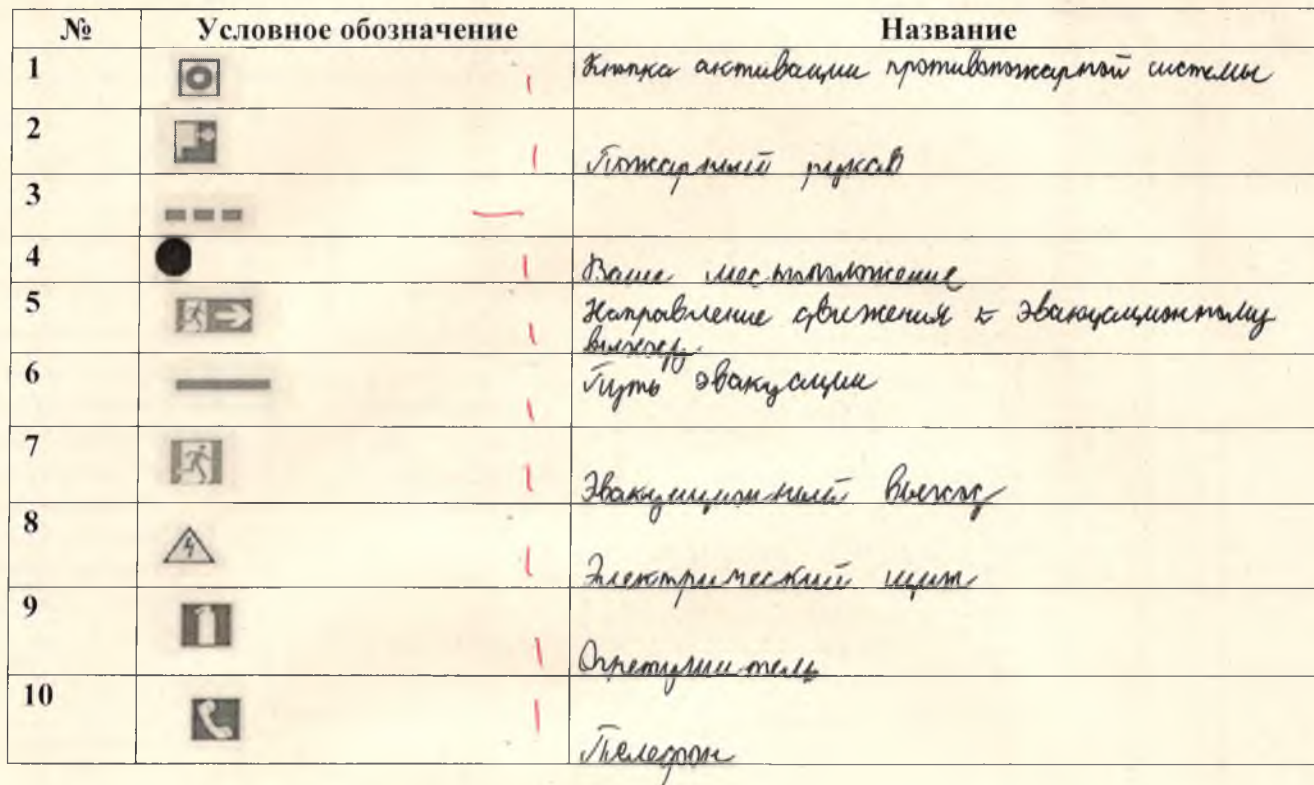 № Условное обозначение Название
1 Кнопка активации противопожарной системы
2 Пожарный рукав
3
4 Ваше местоположение
5 Направление движения к эвакуационному
выходу.
6 Путь эвакуации
7 Эвакуационный выход
8 Электрический щит
9 Огнетушитель
10 Телефон